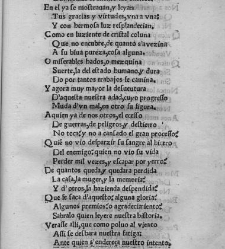 En el ya se mostrauan, y leyan
Tus gracias y virtudes, vna a vna:
Y con hermosa luz resplandecian,
Como en luziente de cristal coluna
Que no encubre, de quanto s'avezina
A su biua pureza, cosa alguna.
O miserables hados, o mezquina
Suerte, la del estado humano, y dura
Do por tantos trabajos se camina.
Y agora muy mayor la desuentura
D'aquesta nuestra edad, cuyo progresso
Muda d'vn mal, en otro su figura.
A quien ya de nos otros, el excesso
De guerras, de peligros, y destierro
No toca; y no a cansado el gran processo?
Que no vio desparzir su sangre al hierro
Del enemigo: quien no vio su vida
Perder mil vezes, y escapar por yerro?
De quantos queda, y quedara perdida
La casa, la muger, y la memoria?
Y d'otros, la hazienda despendida?
Que se saca d'aquesto? alguna gloria?
Algunos premios? o agradecimiento?
Sabralo quien leyere nuestra historia.
Verase alli, que como poluo al viento
Assi se deshara nuestra fatiga,
Ante quien s'endereça nuestro intento,